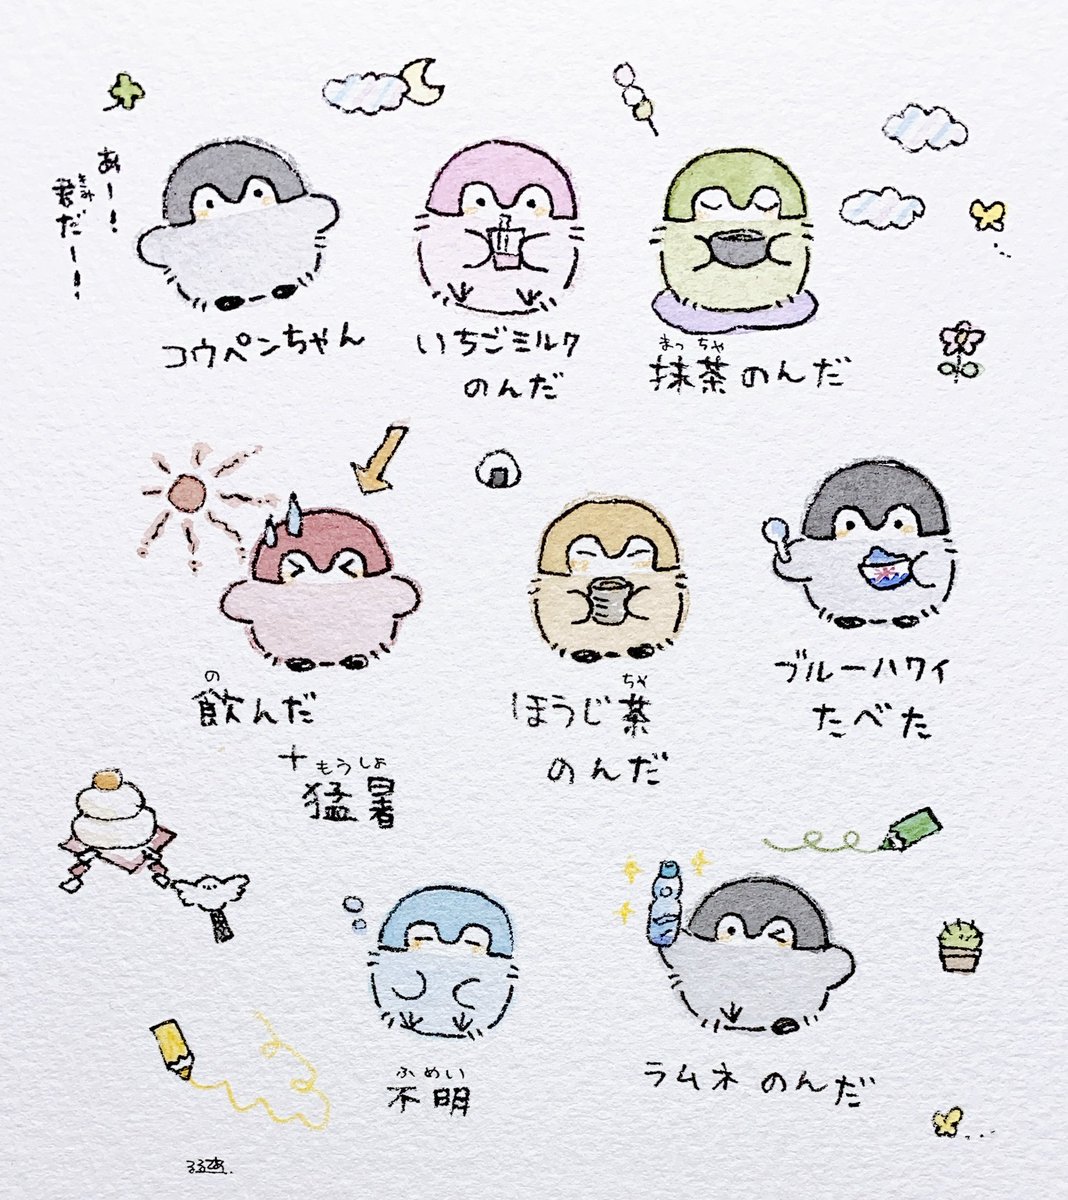 あー！
君だー！
きみ
コウペンちゃん
いちごミルク
のんだ
抹茶のんだ
まっちゃ
飲んだ
の
+猛暑
もうしょ
ほうじ茶
ちゃ
のんだ
ブルーハワイ
たべた
不明
ふめい
ラムネのんだ
るるてあ.